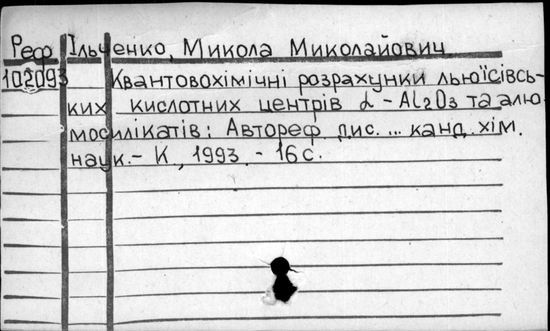 Реф Ільченко, Микола Миколайович
102093 Квантовохімічні розрахунки льюїсівсь-
ких кислотних центрів α - Al2O3 та алю
мосилікатів: Автореф дис. ... канд. хім.
наук. - К, 1993. - 16 с.